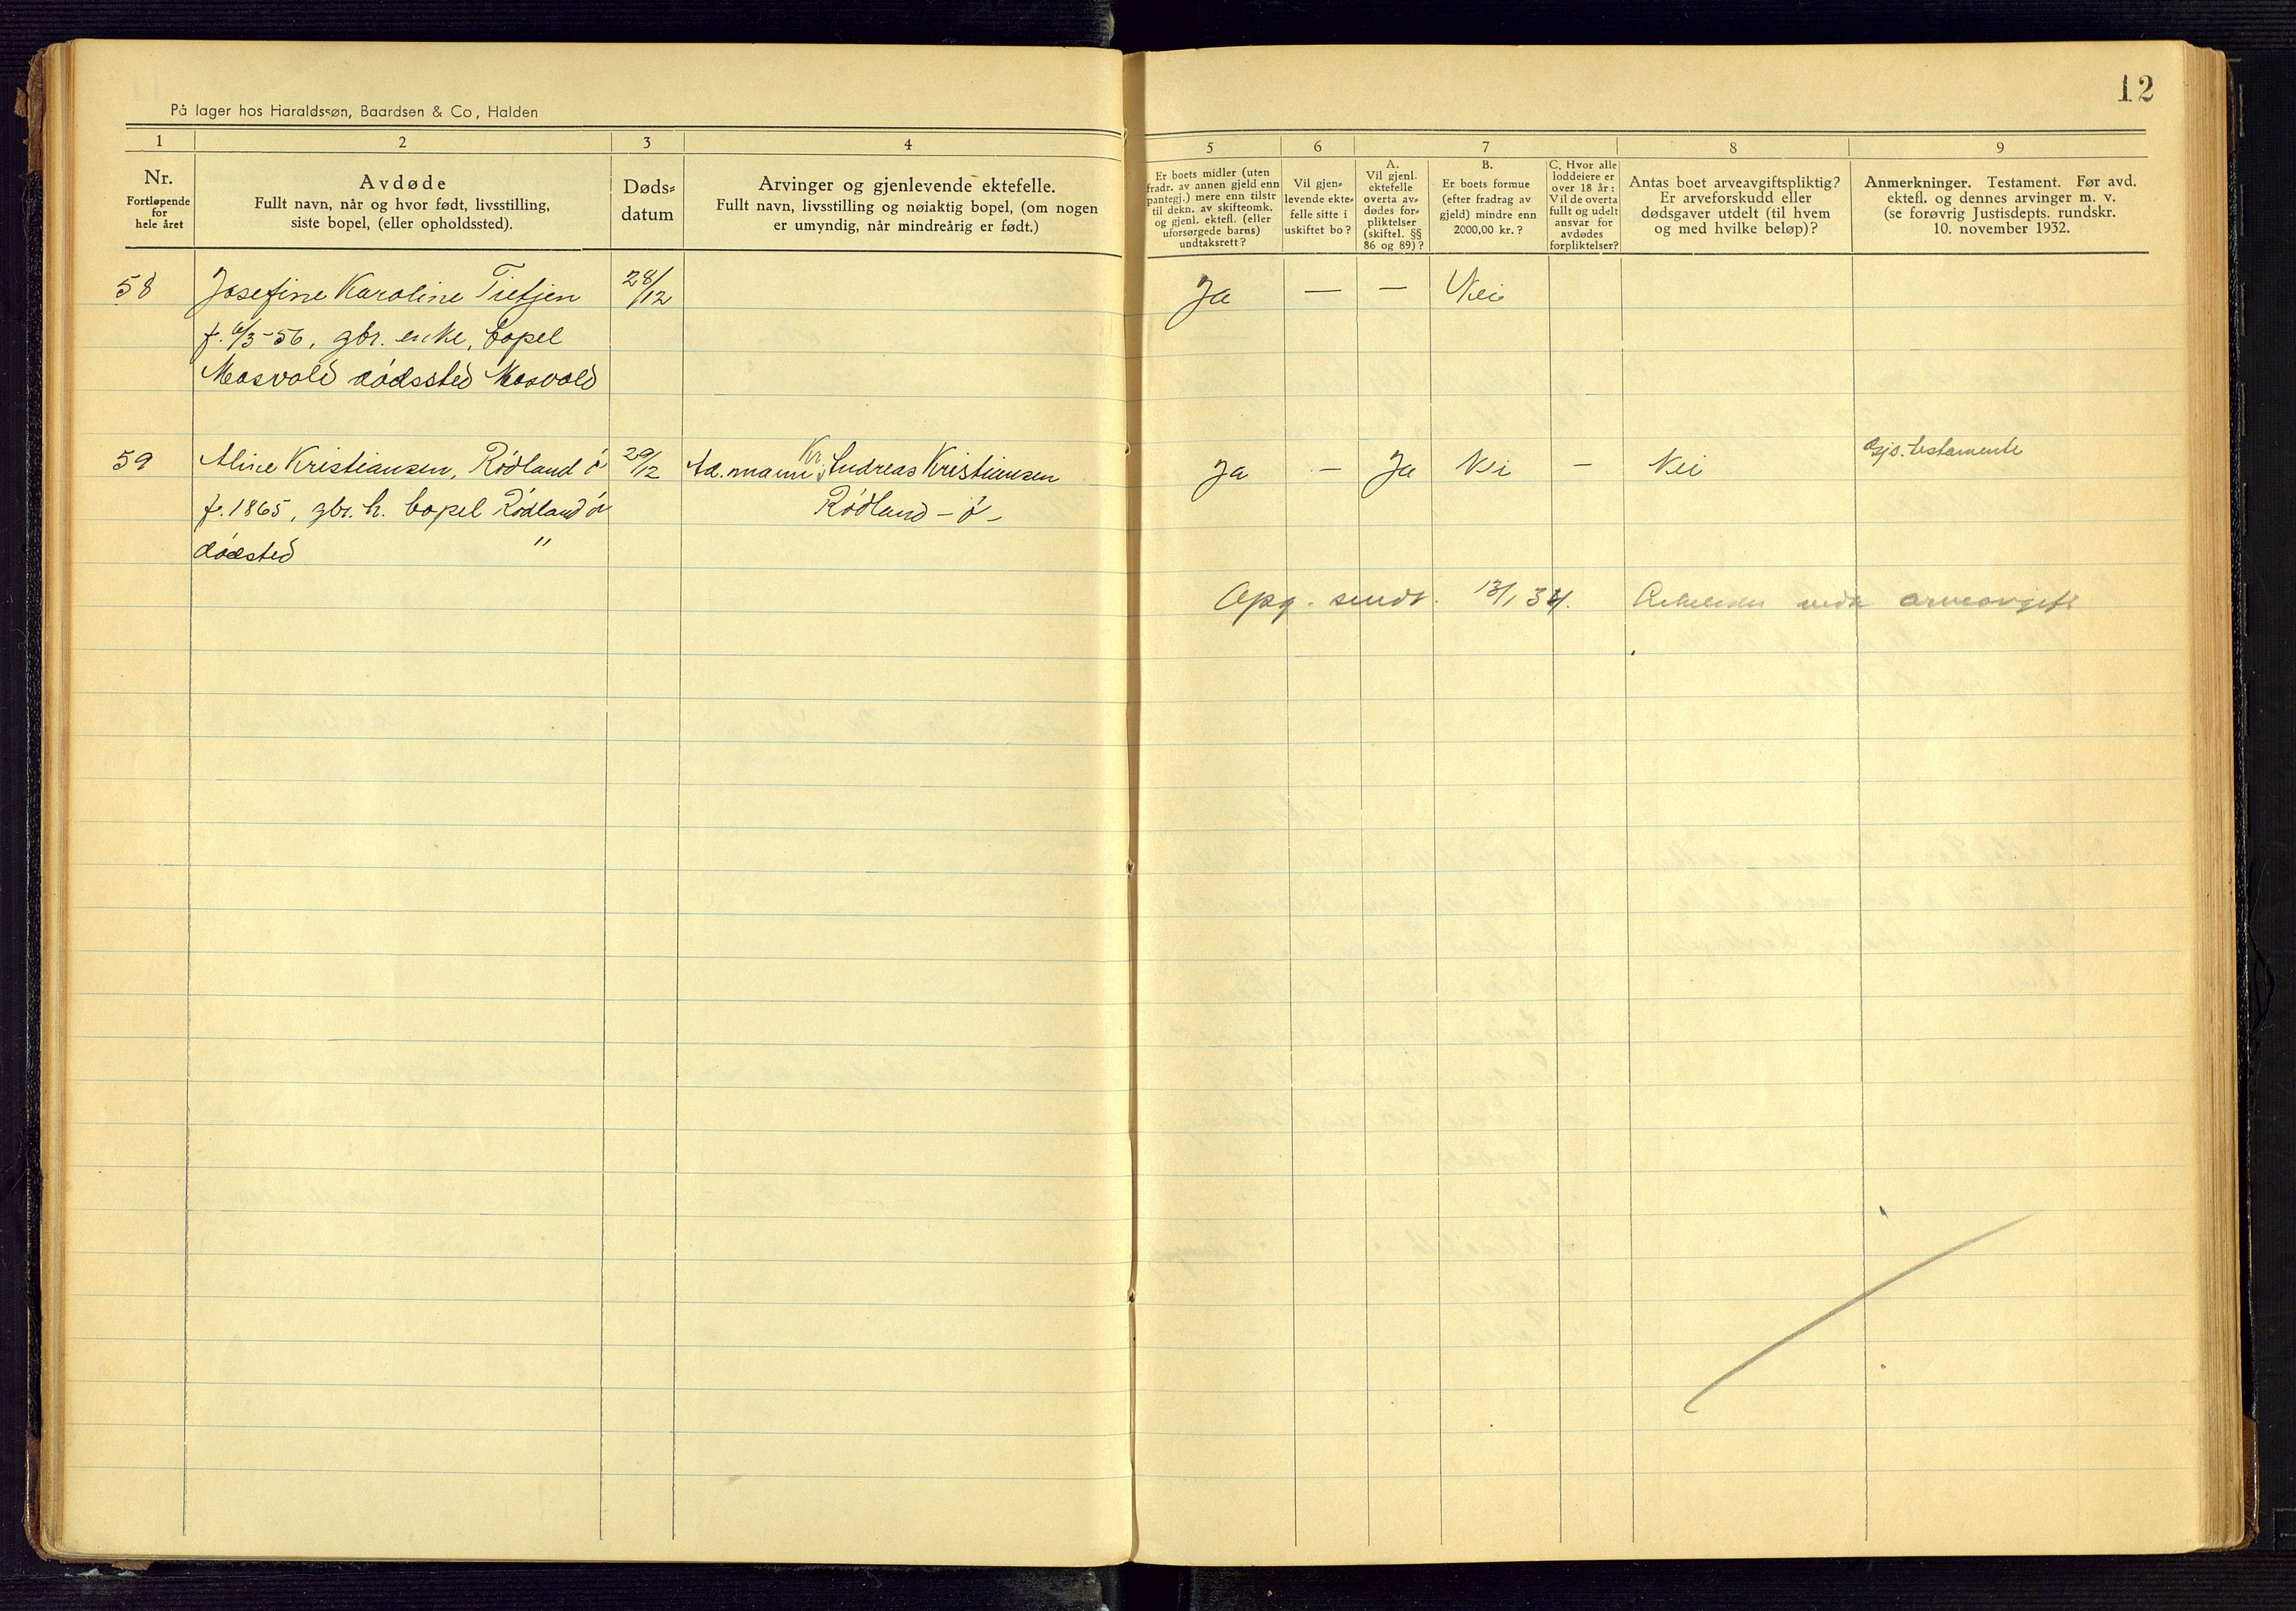 12
På lager hos Haraldssøn, Baardsen & Co, Halden
1 2 3 4 5 6 7 8 9
Nr.
Fortløpende
for
hele året
Avdøde
Fullt navn, når og hvor født, livsstilling,
siste bopel, (eller opholdssted).
Døds-
datum
Arvinger og gjenlevende ektefelle.
Fullt navn, livsstilling og nøiaktig bopel, (om nogen
er umyndig, når mindreårig er født.)
Er boets midler (uten
fradr. av annen gjeld enn
pantegj.) mere enn tilstr
til dekn. av skifteomk.
og gjenl. ektefl. (eller
uforsørgede barns)
undtaksrett?
Vil gjen-
levende ekte-
felle sitte i
uskiftet bo?
A.
Vil gjenl.
ektefelle
overta av-
dødes for-
pliktelser
(skiftel. §§
86 og 89)?
B.
Er boets formue
(efter fradrag av
gjeld) mindre enn
2000,00 kr.?
C. Hvor alle
loddeiere er
over 18 år:
Vil de overta
fullt og udelt
ansvar for
avdødes
forpliktelser?
Antas boet arveavgiftspliktig?
Er arveforskudd eller
dødsgaver utdelt (til hvem
og med hvilke beløp)?
Anmerkninger. Testament. Før avd.
ektefl. og dennes arvinger m. v.
(se forøvrig Justisdepts. rundskr.
10. november 1932.
58 Josefine Karoline Tietjen 28/12 Ja — — Nei
f. 6/3-56, gbr. enke, bopel
Mosvold dødssted Mosvold
59 Aline Kristiansen, Rødland ø 29/12 Kr. Andreas Kristiansen Ja — Ja Nei — Nei Gjs. testamente
f. 1865, gbr. h. bopel Rødland ø Rødland - ø -
dødsted "
Opg. sendt. 13/1 34. vedk arveavgift